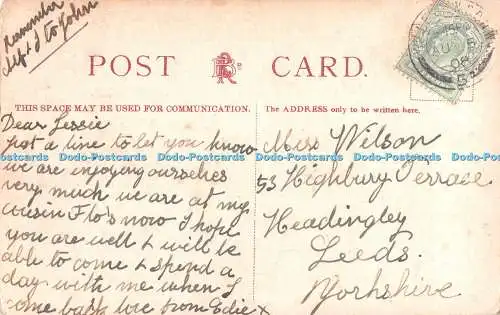 Remember
me to John
POST CARD.
THIS SPACE MAY BE USED FOR COMMUNICATION.
The ADDRESS only to be written here.
Dear Jessie
Just a line to let you know
we are enjoying ourselves
very much we are at my
cousin Flo's now I hope
you are well & will be
able to come & spend a
day with me when I
come back love from Edie x
Miss Wilson
53 Highbury Terrace
Headingley
Leeds.
Yorkshire
Dodo-Postcards Dodo-Postcards Dodo-Postcards Dodo-Postcards Dodo-Postcards Dodo-Postcards